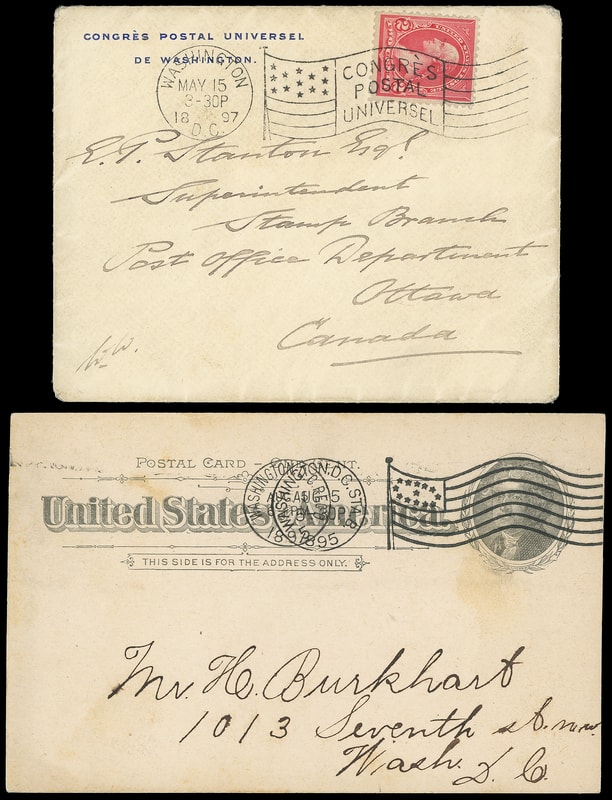 CONGRÈS POSTAL UNIVERSEL
DE WASHINGTON.
WASHINGTON
MAY 15
3-30P
18 97
D.C.
CONGRÈS
POSTAL
UNIVERSEL
2
E. P. Stanton Esqr.
Superintendent
Stamp Branch
Post Office Department
Ottawa
Canada
POSTAL CARD –
United States America.
WASHINGTON, D.C.
1895
THIS SIDE IS FOR THE ADDRESS ONLY.
Mr. H. Burkhart
1013 Seventh st. n.w.
Wash. D. C.